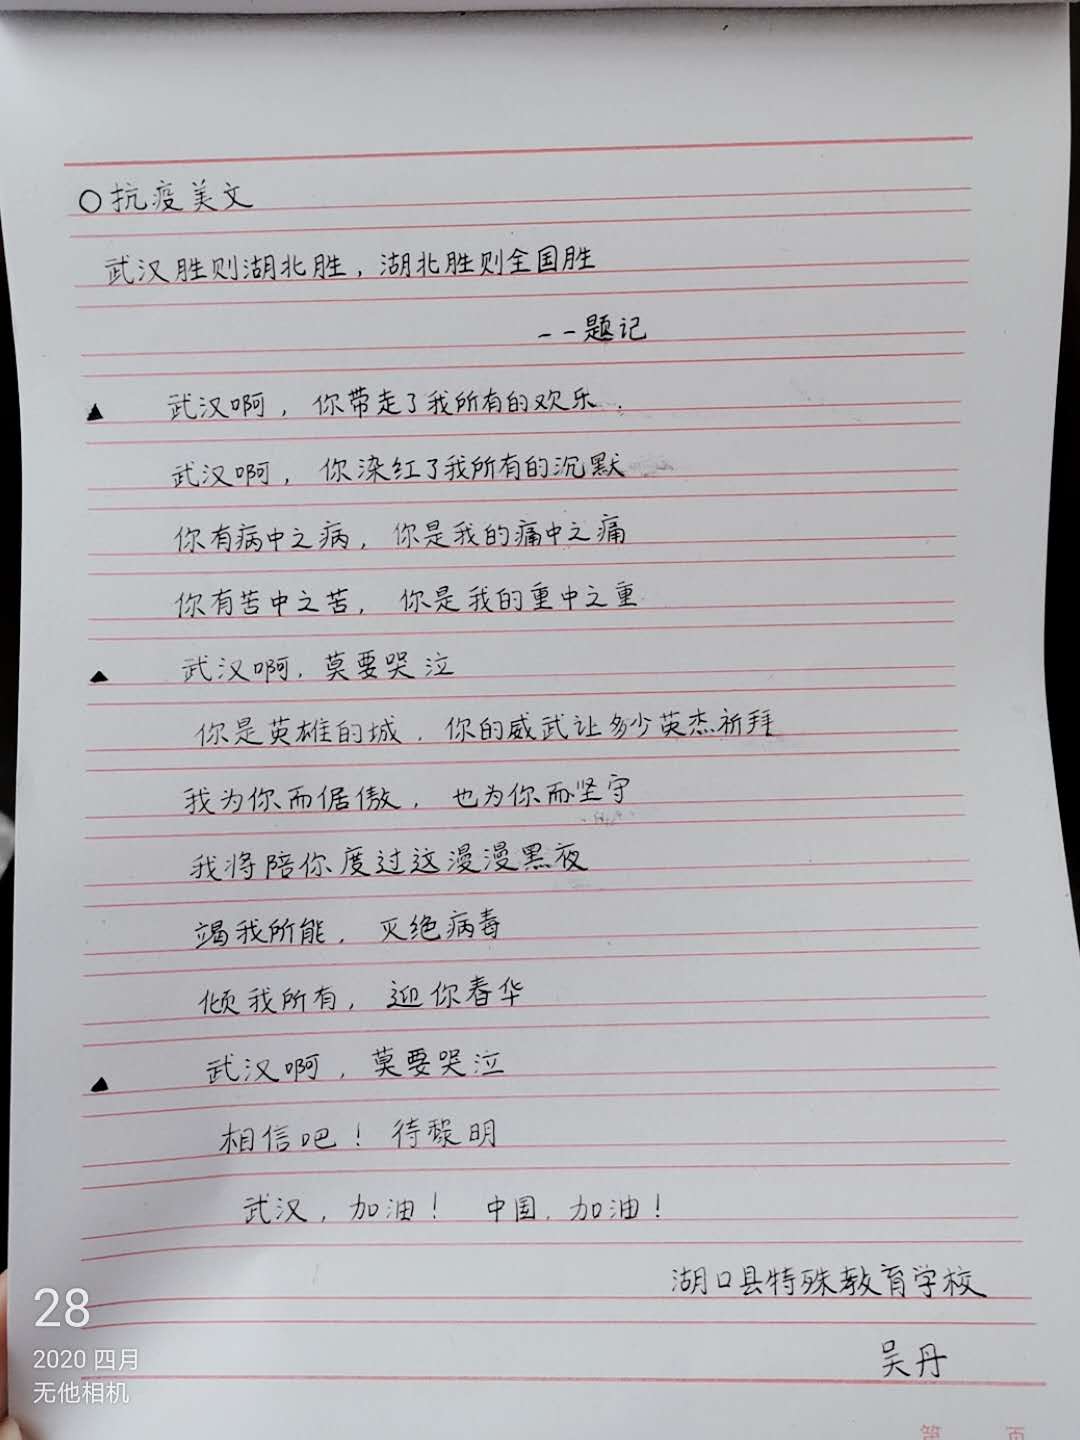 ○抗疫美文
武汉胜则湖北胜，湖北胜则全国胜
--题记
▲ 武汉啊，你带走了我所有的欢乐.
武汉啊，你染红了我所有的沉默
你有病中之病，你是我的痛中之痛
你有苦中之苦，你是我的重中之重
▲ 武汉啊，莫要哭泣
你是英雄的城，你的威武让多少英杰祈拜
我为你而倨傲，也为你而坚守
我将陪你度过这漫漫黑夜
竭我所能，灭绝病毒
倾我所有，迎你春华
▲ 武汉啊，莫要哭泣
相信吧！待黎明
武汉，加油！ 中国，加油！
湖口县特殊教育学校
吴丹
28
2020 四月
无他相机
第 页